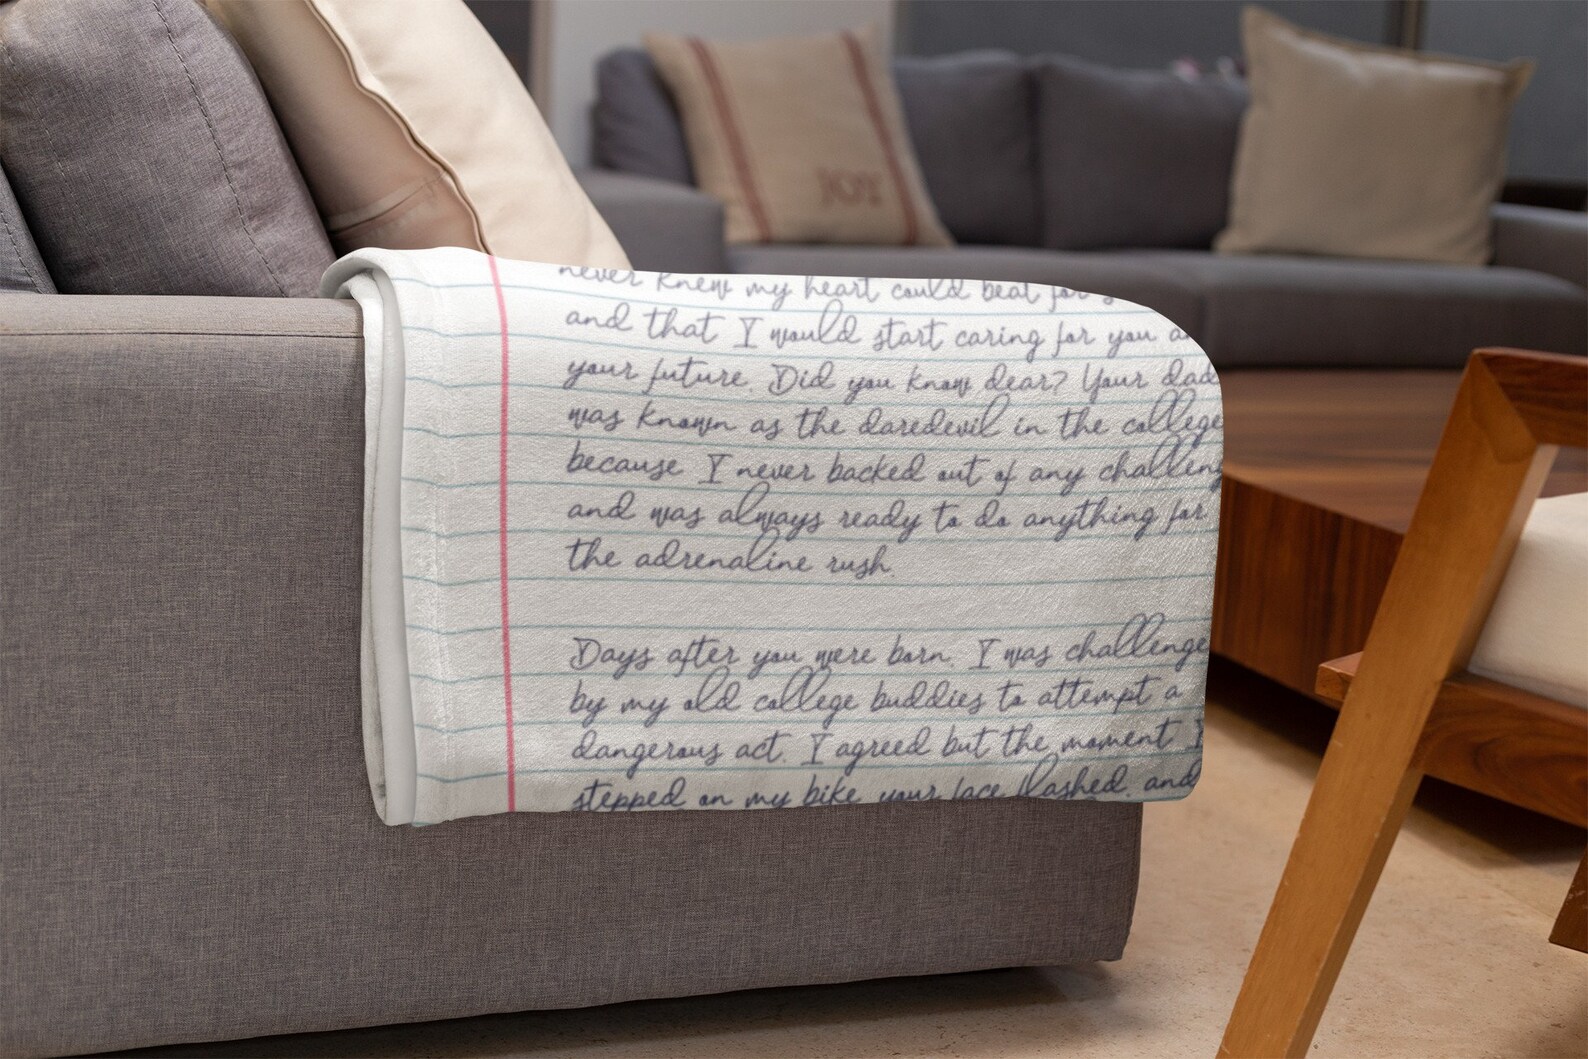 JOY
never knew my heart could beat for
and that I would start caring for you
your future. Did you know dear? Your dad
was known as the daredevil in the college
because I never backed out of any
and was always ready to do anything for
the adrenaline rush.
Days after you were born, I was
by my old college buddies to attempt a
dangerous act. I agreed but the moment I
stepped on my bike, your face flashed, and